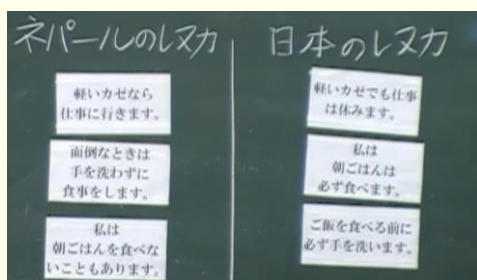 ネパールのレヌカ
軽いカゼなら
仕事に行きます。
面倒なときは
手を洗わずに
食事をします。
私は
朝ごはんを食べな
いこともあります。
日本のレヌカ
軽いカゼでも仕事
は休みます。
私は
朝ごはんは
必ず食べます。
ご飯を食べる前に
必ず手を洗います。